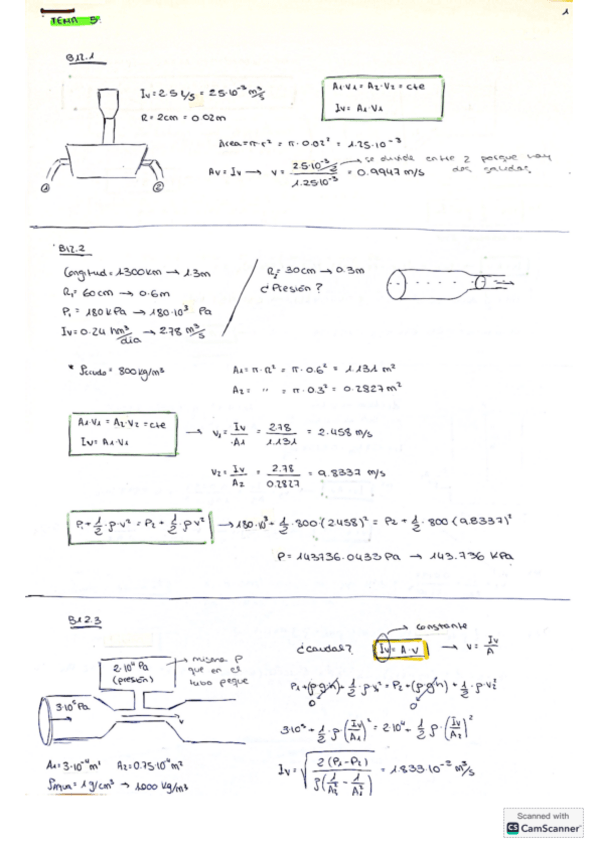 1
TEMA 5
B12.1
Iv = 2.5 L/s = 2.5·10⁻³ m³/s
R = 2cm = 0.02m
A₁·V₁ = A₂·V₂ = cte
Iv = A₁·V₁
Area = π·r² = π·0.02² = 1.25·10⁻³
Av = Iv → v = (2.5·10⁻³/2)/(1.25·10⁻³) = 0.9947 m/s
→ se divide entre 2 porque hay dos salidas
1
2
B12.2
Longitud = 1300km → 1.3m
R₁ = 60cm → 0.6m
P₁ = 180kPa → 180·10³ Pa
Iv = 0.24 hm³/día → 2.78 m³/s
R₂ = 30cm → 0.3m
¿Presión?
* ρcrudo = 800kg/m³
A₁ = π·R² = π·0.6² = 1.131 m²
A₂ = " = π·0.3² = 0.2827m²
A₁·V₁ = A₂·V₂ = cte
Iv = A₁·V₁
→ V₁ = Iv/A₁ = 2.78/1.131 = 2.458 m/s
V₂ = Iv/A₂ = 2.78/0.2827 = 9.8337 m/s
P₁ + 1/2·ρ·v² = P₂ + 1/2·ρv² → 180·10³ + 1/2·800(2458)² = P₂ + 1/2·800(9.8337)²
P = 143736.0433Pa → 143.736 kPa
B12.3
2·10⁴ Pa
(presión)
→ misma p
que en el
tubo peque
3·10⁵ Pa
A₁ = 3·10⁻⁴m² A₂ = 0.75·10⁻⁴m²
= 1g/cm³ → 1000 kg/m³
→ constante
¿caudal? Iv = A·v → v = Iv/A
P₁ + (ρgh) + 1/2·ρv² = P₂ + (ρgh) + 1/2·ρ·v₂²
0 0
3·10⁵ + 1/2·ρ·(Iv/A₁)² = 2·10⁴ + 1/2 ρ·(Iv/A₂)²
Iv = √(2(P₁-P₂)/ρ(1/A₂² - 1/A₁²)) = 1.833·10⁻³ m³/s
Scanned with
CS CamScanner